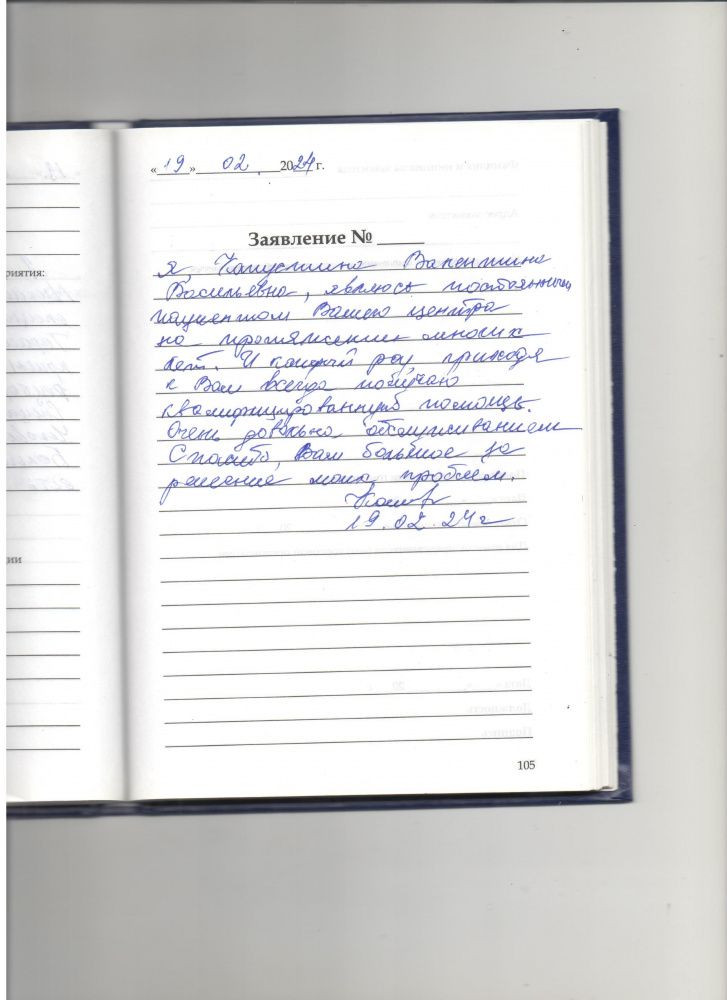 «19» 02. 2024 г.
Заявление № ____
Я, Капустина Валентина
Васильевна, являюсь постоянным
пациентом Вашего центра
на протяжении многих
лет. И каждый раз приходя
к Вам всегда получаю
квалифицированную помощь.
Очень довольна обслуживанием
Спасибо, Вам большое за
решение моих проблем.
19.02.24 г
риятия:
ии
105